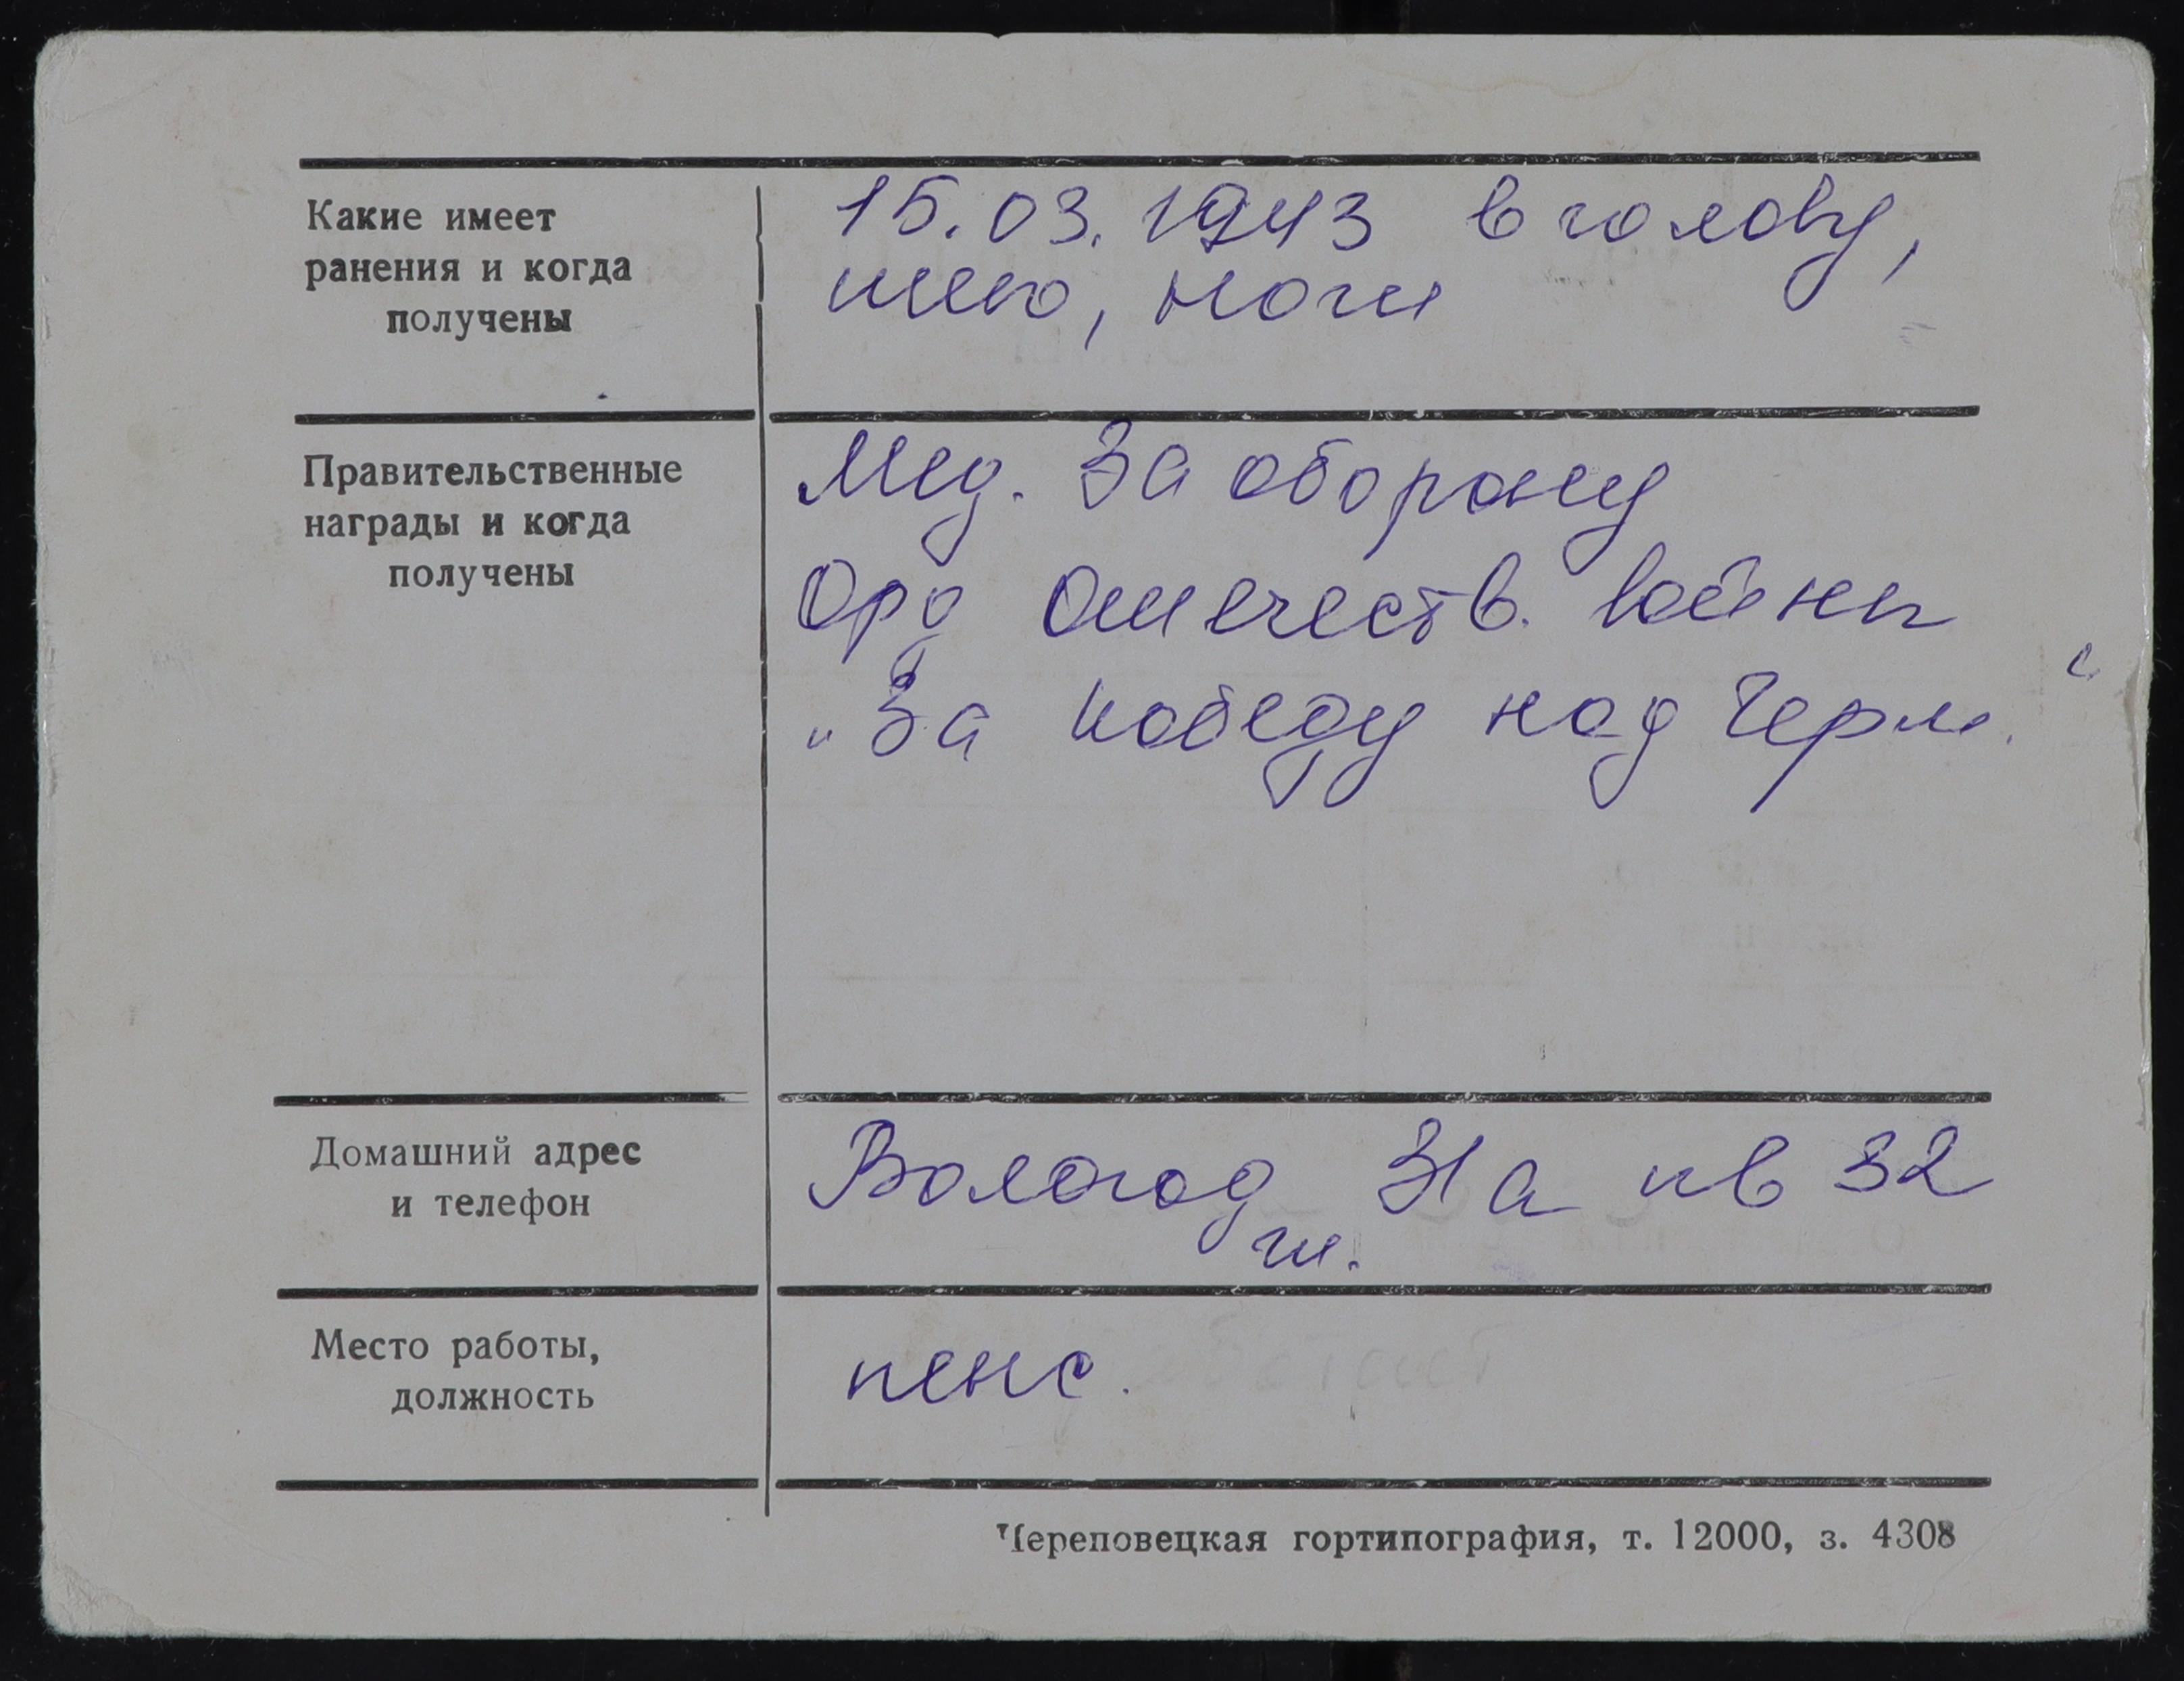 Какие имеет
ранения и когда
получены
15.03.1943 в голову,
шею, ноги
Правительственные
награды и когда
получены
Мед. За оборону
Орд Отечеств. войны
„За победу над Герм.“
Домашний адрес
и телефон
Вологод 31а кв 32
ги.
Место работы,
должность
пенс.
Череповецкая гортипография, т. 12000, з. 4308